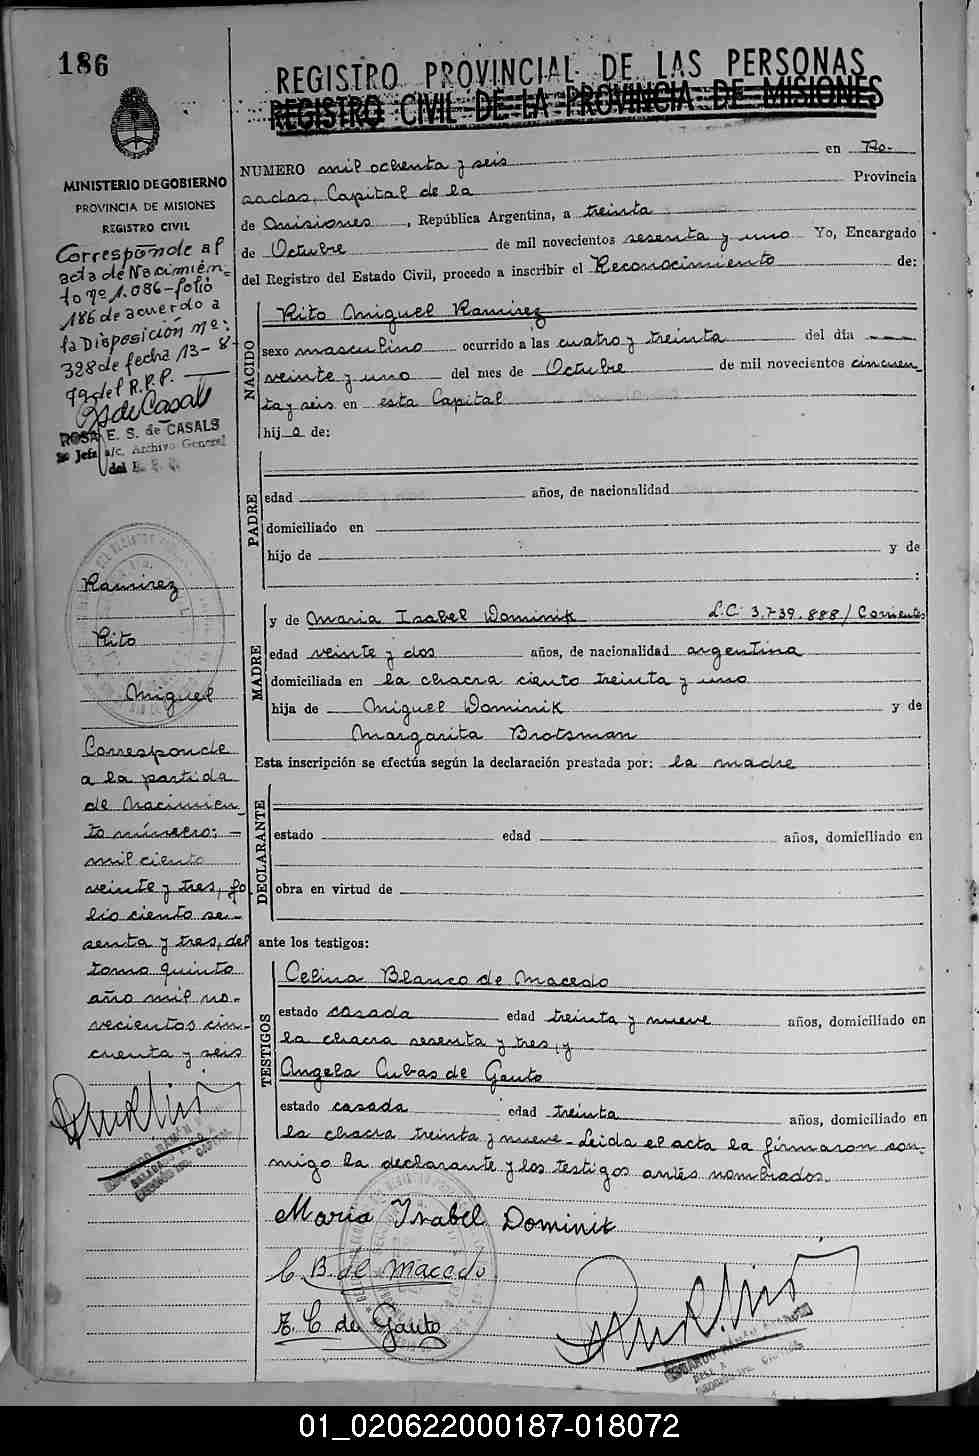 186
REGISTRO PROVINCIAL DE LAS PERSONAS
REGISTRO CIVIL DE LA PROVINCIA DE MISIONES
MINISTERIO DE GOBIERNO
PROVINCIA DE MISIONES
REGISTRO CIVIL
Corresponde al
acta de Nacimien-
to nº 1.086-folio
186 de acuerdo a
la Disposición nº:
328 de fecha 13-8-
79 del R.P.P.
ROSA E. S. de CASALS
Jefa a/c. Archivo General
del
Ramirez
Rito
Miguel
Corresponde
a la partida
de Nacimien
to número:
mil ciento
veinte y tres, fo
lio ciento se-
senta y tres, del
tomo quinto
año mil no-
vecientos cin-
cuenta y seis
NUMERO mil ochenta y seis en Po-
sadas, Capital de la Provincia
de Misiones, República Argentina, a treinta
de Octubre de mil novecientos sesenta y uno Yo, Encargado
del Registro del Estado Civil, procedo a inscribir el Reconocimiento de:
NACIDO
Rito Miguel Ramirez
sexo masculino ocurrido a las cuatro y treinta del día
veinte y uno del mes de Octubre de mil novecientos cincuen
ta y seis en esta Capital
hijo de:
PADRE
edad años, de nacionalidad
domiciliado en
hijo de y de
:
MADRE
y de Maria Isabel Dominik L.C. 3.739.888/Corrientes
edad veinte y dos años, de nacionalidad argentina
domiciliada en la chacra ciento treinta y uno
hija de Miguel Dominik y de
Margarita Brotsman
Esta inscripción se efectúa según la declaración prestada por: la madre
DECLARANTE
estado edad años, domiciliado en
obra en virtud de
ante los testigos:
TESTIGOS
Celina Blanco de Macedo
estado casada edad treinta y nueve años, domiciliado en
la chacra sesenta y tres, y
Angela Cubas de Gauto
estado casada edad treinta años, domiciliado en
la chacra treinta y nueve - Leida el acta la firmaron con-
migo la declarante y los testigos antes nombrados.
Maria Isabel Dominik
C. B. de Macedo
A. C. de Gauto
01_020622000187-018072